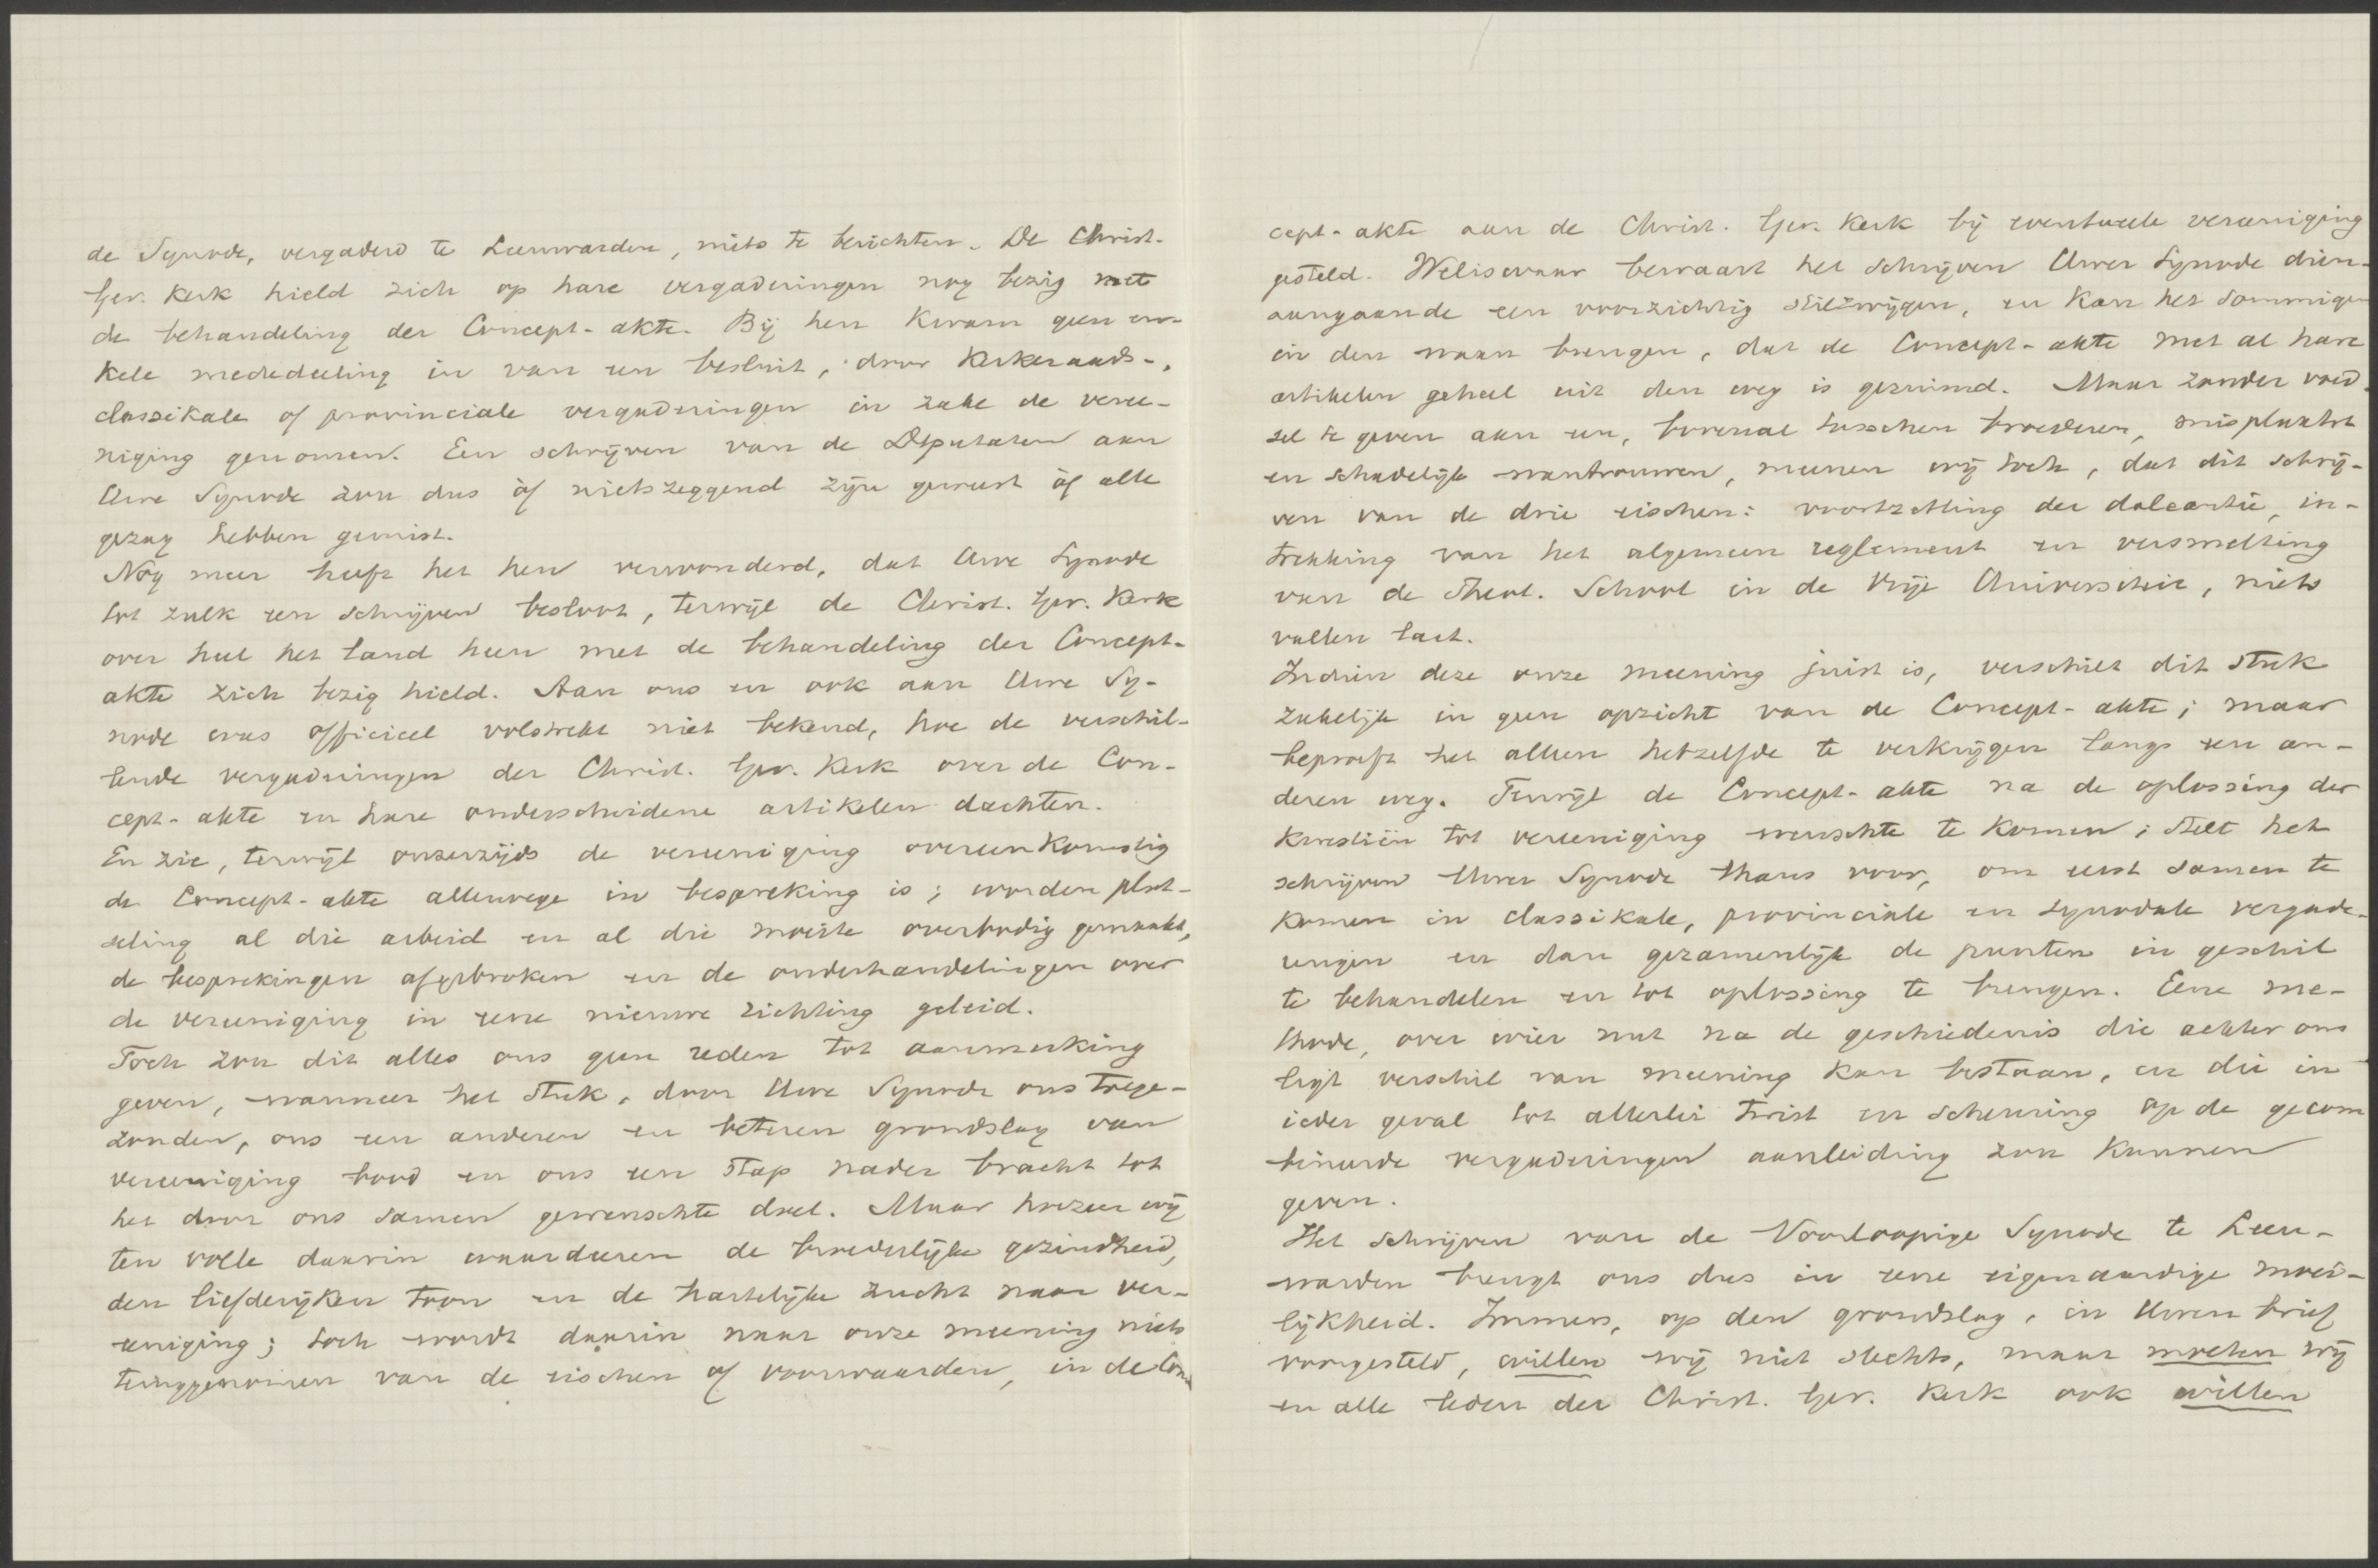 de Synode, vergaderd te Leeuwarden, niets te berichten. De Christ.
Ger. Kerk hield zich op hare vergaderingen nog bezig met
de behandeling der Concept-akte. Bij hen kwam geen en-
kele mededeeling in van een besluit, door Kerkeraads-,
classikale of provinciale vergaderingen in zake de veree-
niging genomen. Een schrijven van de Deputaten aan
Uwe Synode zou dus òf nietszeggend zijn geweest òf alle
gezag hebben gemist.
Nog meer heeft het hen verwonderd, dat Uwe Synode
tot zulk een schrijven besloot, terwijl de Christ. Ger. Kerk
over heel het land heen met de behandeling der Concept-
akte zich bezig hield. Aan ons en ook aan Uwe Sy-
node was officieel volstrekt niet bekend, hoe de verschil-
lende vergaderingen der Christ. Ger. Kerk over de Con-
cept-akte en hare onderscheidene artikelen dachten.
En zie, terwijl onzerzijds de vereeniging overeenkomstig
de Concept-akte allerwege in bespreking is; worden plot-
seling al die arbeid en al die moeite overbodig gemaakt,
de besprekingen afgebroken en de onderhandelingen over
de vereeniging in eene nieuwe richting geleid.
Toch zou dit alles ons geen reden tot aanmerking
geven, wanneer het stuk, door Uwe Synode ons toege-
zonden, ons een anderen en beteren grondslag van
vereeniging bood en ons een stap nader bracht tot
het door ons samen gewenschte doel. Maar hoezeer wij
ten volle daarin waardeeren de broederlijke gezindheid,
den liefderijken toon en de hartelijke zucht naar ver-
eeniging; toch wordt daarin naar onze meening niets
teruggenomen van de eischen of voorwaarden, in de Con-
cept-akte aan de Christ. Ger. Kerk bij eventueele vereeniging
gesteld. Weliswaar bewaart het schrijven Uwer Synode dien-
aangaande een voorzichtig stilzwijgen, en kan het sommigen
in den waan brengen, dat de Concept-akte met al hare
artikelen geheel uit den weg is geruimd. Maar zonder voed-
sel te geven aan een, bovenal tusschen broederen, misplaatst
en schadelijk wantrouwen, meenen wij toch, dat dit schrij-
ven van de drie eischen: voortzetting der doleantie, in-
trekking van het algemeen reglement en versmelting
van de Theol. School in de Vrije Universiteit, niets
vallen laat.
Indien deze onze meening juist is, verschilt dit stuk
zakelijk in geen opzicht van de Concept-akte; maar
beproeft het alleen hetzelfde te verkrijgen langs een an-
deren weg. Terwijl de Concept-akte na de oplossing der
kwestiën tot vereeniging wenschte te komen; stelt het
schrijven Uwer Synode thans voor, om eerst samen te
komen in classikale, provinciale en synodale vergade-
ringen en dan gezamenlijk de punten in geschil
te behandelen en tot oplossing te brengen. Eene me-
thode, over wier nut na de geschiedenis die achter ons
ligt verschil van meening kan bestaan, en die in
ieder geval tot allerlei twist en scheuring op de gecom
bineerde vergaderingen aanleiding zou kunnen
geven.
Het schrijven van de Voorloopige Synode te Leeu-
warden brengt ons dus in eene eigenaardige moei-
lijkheid. Immers, op den grondslag, in Uwen brief
voorgesteld, willen wij niet slechts, maar moeten wij
en alle leden der Christ. Ger. Kerk ook willen